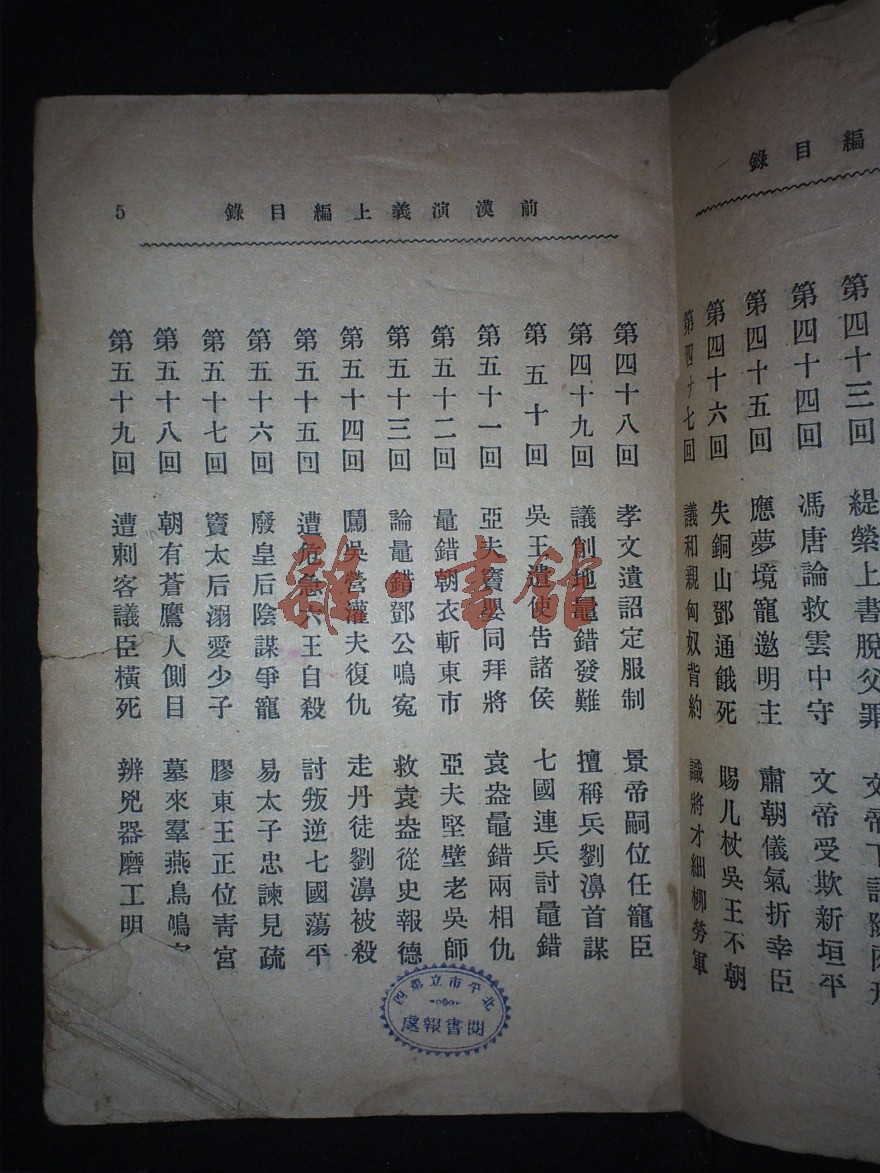 編目錄
第四十三回　緹縈上書脫父罪　文帝下詔除肉刑
第四十四回　馮唐論救雲中守　文帝受欺新垣平
第四十五回　應夢境寵邀明主　肅朝儀氣折幸臣
第四十六回　失銅山鄧通餓死　賜几杖吳王不朝
第四十七回　議和親匈奴背約　識將才細柳勞軍
前漢演義上編目錄　5
第四十八回　孝文遺詔定服制　景帝嗣位任寵臣
第四十九回　議削地鼂錯發難　擅稱兵劉濞首謀
第五十回　吳王遣使告諸侯　七國連兵討鼂錯
第五十一回　亞夫竇嬰同拜將　袁盎鼂錯兩相仇
第五十二回　鼂錯朝衣斬東市　亞夫堅壁老吳師
第五十三回　論鼂錯鄧公鳴冤　救袁盎從史報德
第五十四回　鬭吳營灌夫復仇　走丹徒劉濞被殺
第五十五回　遭危急六王自殺　討叛逆七國蕩平
第五十六回　廢皇后陰謀爭寵　易太子忠諫見疏
第五十七回　竇太后溺愛少子　膠東王正位青宮
第五十八回　朝有蒼鷹人側目　墓來羣燕鳥鳴
第五十九回　遭刺客議臣橫死　辨兇器磨工明
雜·書館
北平市立第四
閱書報處